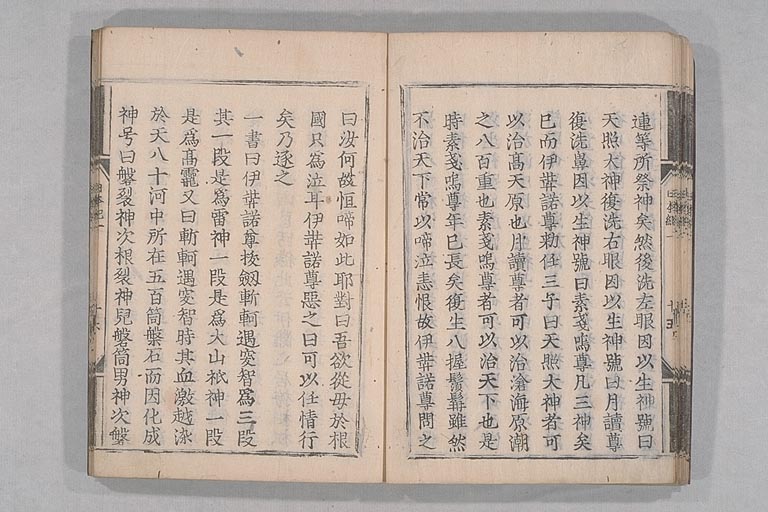 連等所祭神矣然後洗左眼因以生神號曰
天照大神復洗右眼因以生神號曰月讀尊
復洗鼻因以生神號曰素戔嗚尊凡三神矣
已而伊弉諾尊勅任三子曰天照大神者可
以治髙天原也月讀尊者可以治滄海原潮
之八百重也素戔嗚尊者可以治天下也是
時素戔嗚尊年已長矣復生八握鬚髯雖然
不治天下常以啼泣恚恨故伊弉諾尊問之
曰汝何故恒啼如此耶對曰吾欲從母於根
國只為泣耳伊弉諾尊惡之曰可以任情行
矣乃逐之
一書曰伊弉諾尊拔劔斬軻遇突智為三段
其一段是為雷神一段是為大山祇神一段
是為髙龗又曰斬軻遇突智時其血激越染
於天八十河中所在五百箇磐石而因化成
神号曰磐裂神次根裂神兒磐筒男神次磐